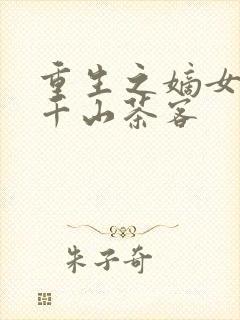 重生之嫡女
千山茶客
朱子奇